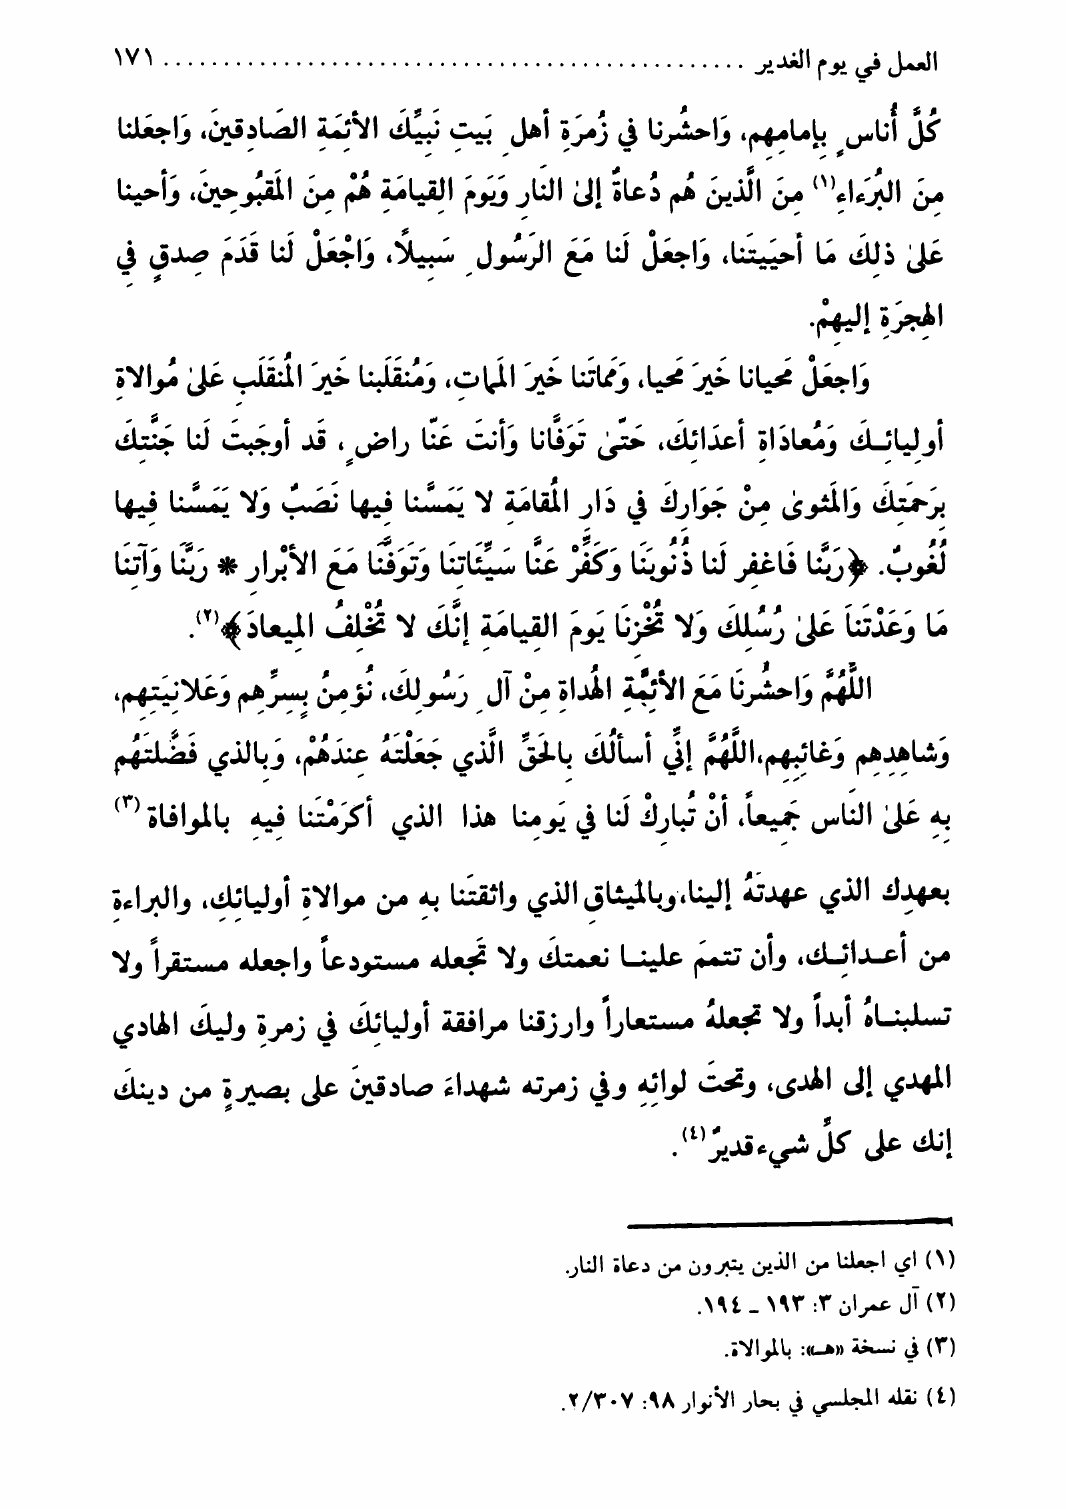 العمل في يوم الغدير ................................................ ١٧١
كُلَّ أُناسٍ بِإمامِهِم، وَاحشُرنا في زُمرَةِ أهلِ بَيتِ نَبيِّكَ الأئِمَةِ الصَادِقينَ، وَاجعَلنا
مِنَ البُرَءاءِ(١) مِنَ الَّذينَ هُم دُعاةٌ إلىٰ النَارِ وَيَومَ القِيامَةِ هُمْ مِنَ المَقبُوحِينَ، وَأحينا
عَلىٰ ذلِكَ مَا أحيَيتَنا، وَاجعَلْ لَنا مَعَ الرَسُولِ سَبِيلاً، وَاجْعَلْ لَنا قَدَمَ صِدقٍ فِي
الهِجرَةِ إليهِمْ.
وَاجعَلْ مَحيانا خَيرَ مَحيا، وَمَماتَنا خَيرَ المَماتِ، وَمُنقَلَبنا خَيرَ المُنقَلَبِ عَلىٰ مُوالاةِ
أولِيائِكَ وَمُعادَاةِ أعدَائِكَ، حَتّىٰ تَوَفَّانا وَأنتَ عَنّا راضٍ، قَد أوجَبتَ لَنا جَنَّتكَ
بِرَحمَتِكَ وَالمَثوىٰ مِنْ جَوَارِكَ في دَارِ المُقامَةِ لا يَمَسَّنا فِيها نَصَبٌ وَلا يَمَسَّنا فِيها
لُغُوبٌ. ﴿رَبَّنا فَاغفِر لَنا ذُنُوبَنَا وَكَفِّرْ عَنَّا سَيِّئَاتِنَا وَتَوَفَّنَا مَعَ الأبْرارِ * رَبَّنَا وَآتنَا
مَا وَعَدْتَنَا عَلىٰ رُسُلِكَ وَلا تُخْزِنَا يَومَ القِيامَةِ إنَّكَ لا تُخْلِفُ المِيعادَ﴾(٢).
اللَّهُمَّ وَاحشُرنَا مَعَ الأئِمَّةِ الهُداةِ مِنْ آلِ رَسُولِكَ، نُؤمِنُ بِسِرِّهِم وَعَلانِيَتِهِم،
وَشاهِدِهِم وَغائِبِهِم،اللَّهُمَّ إنّي أسألُكَ بِالحَقِّ الَّذي جَعَلْتَهُ عِندَهُمْ، وَبِالذي فَضَّلتَهُم
بِهِ عَلىٰ النَاسِ جَمِيعاً، أنْ تُبارِكْ لَنا في يَومِنا هذا الذي أكرَمْتَنا فِيهِ بالموافاة(٣)
بعهدِك الذي عهدتَهُ إلينا،وبالميثاقِ الذي واثقتَنا بهِ من موالاةِ أوليائِكِ، والبراءةِ
من أعدائِكِ، وأن تتممَ علينا نعمتكَ ولا تَجعله مستودعاً واجعله مستقراً ولا
تسلبناهُ أبداً ولا تجعلهُ مستعاراً وارزقنا مرافقة أوليائِكَ في زمرةِ وليكَ الهادي
المهدي إلى الهدى، وتحتَ لوائِهِ وفي زمرته شهداءَ صادقينَ على بصيرةٍ من دينكَ
إنك على كلِّ شيء قديرٌ(٤).
(١) اي اجعلنا من الذين يتبرون من دعاة النار.
(٢) آل عمران ٣: ١٩٣ ـ ١٩٤.
(٣) في نسخة «هـ»: بالموالاة.
(٤) نقله المجلسي في بحار الأنوار ٩٨: ٢/٣٠٧.